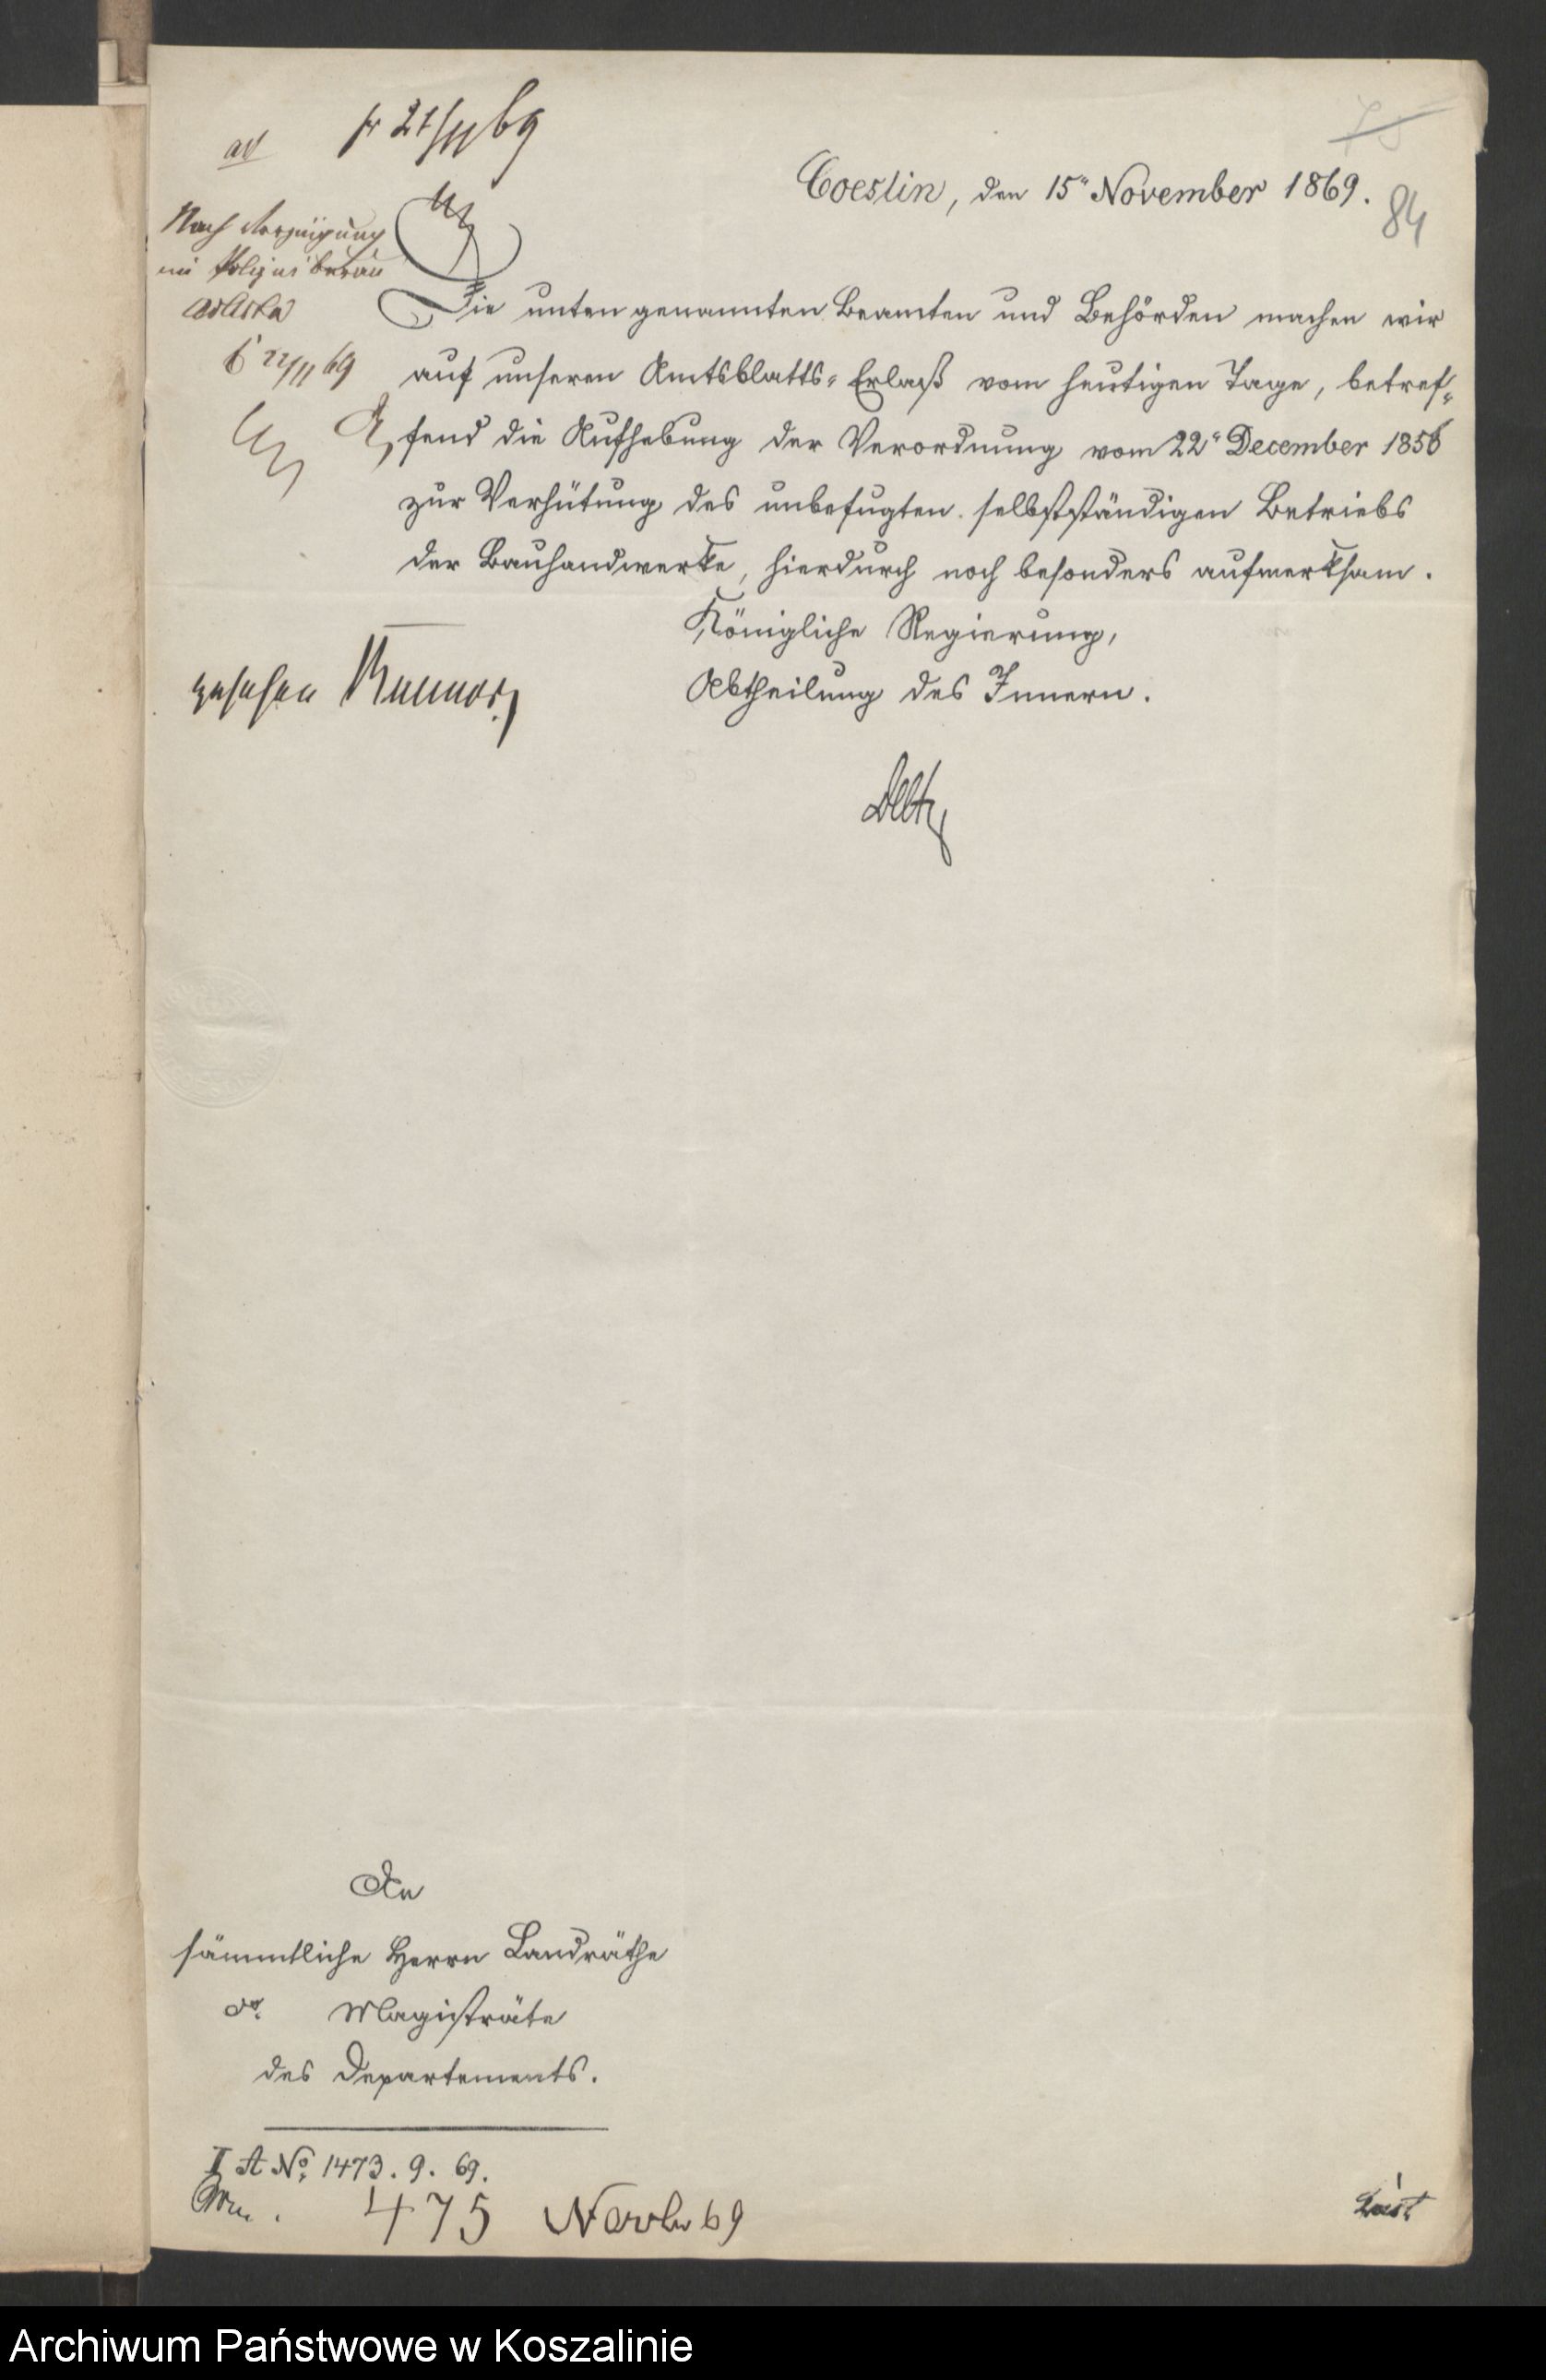 ad
pr 21/11 69
75
Coeslin, den 15" November 1869.
84
Nach
im Polizei büreau
ad acta
C 22/11 69
Die unten genannten Beamten und Behörden machen wir
auf unseren Amtsblatts-Erlaß vom heutigen Tage, betref-
fend die Aufhebung der Verordnung vom 22" December 1856
zur Verhütung des unbefugten selbstständigen Betriebs
der Bauhandwerke, hierdurch noch besonders aufmerksam.
Königliche Regierung,
Abtheilung des Innern.
gesehen
An
sämmtliche Herrn Landräthe
do. Magisträte
des Departements.
I A No. 1473. 9. 69.
475 Novbr 69
Archiwum Państwowe w Koszalinie